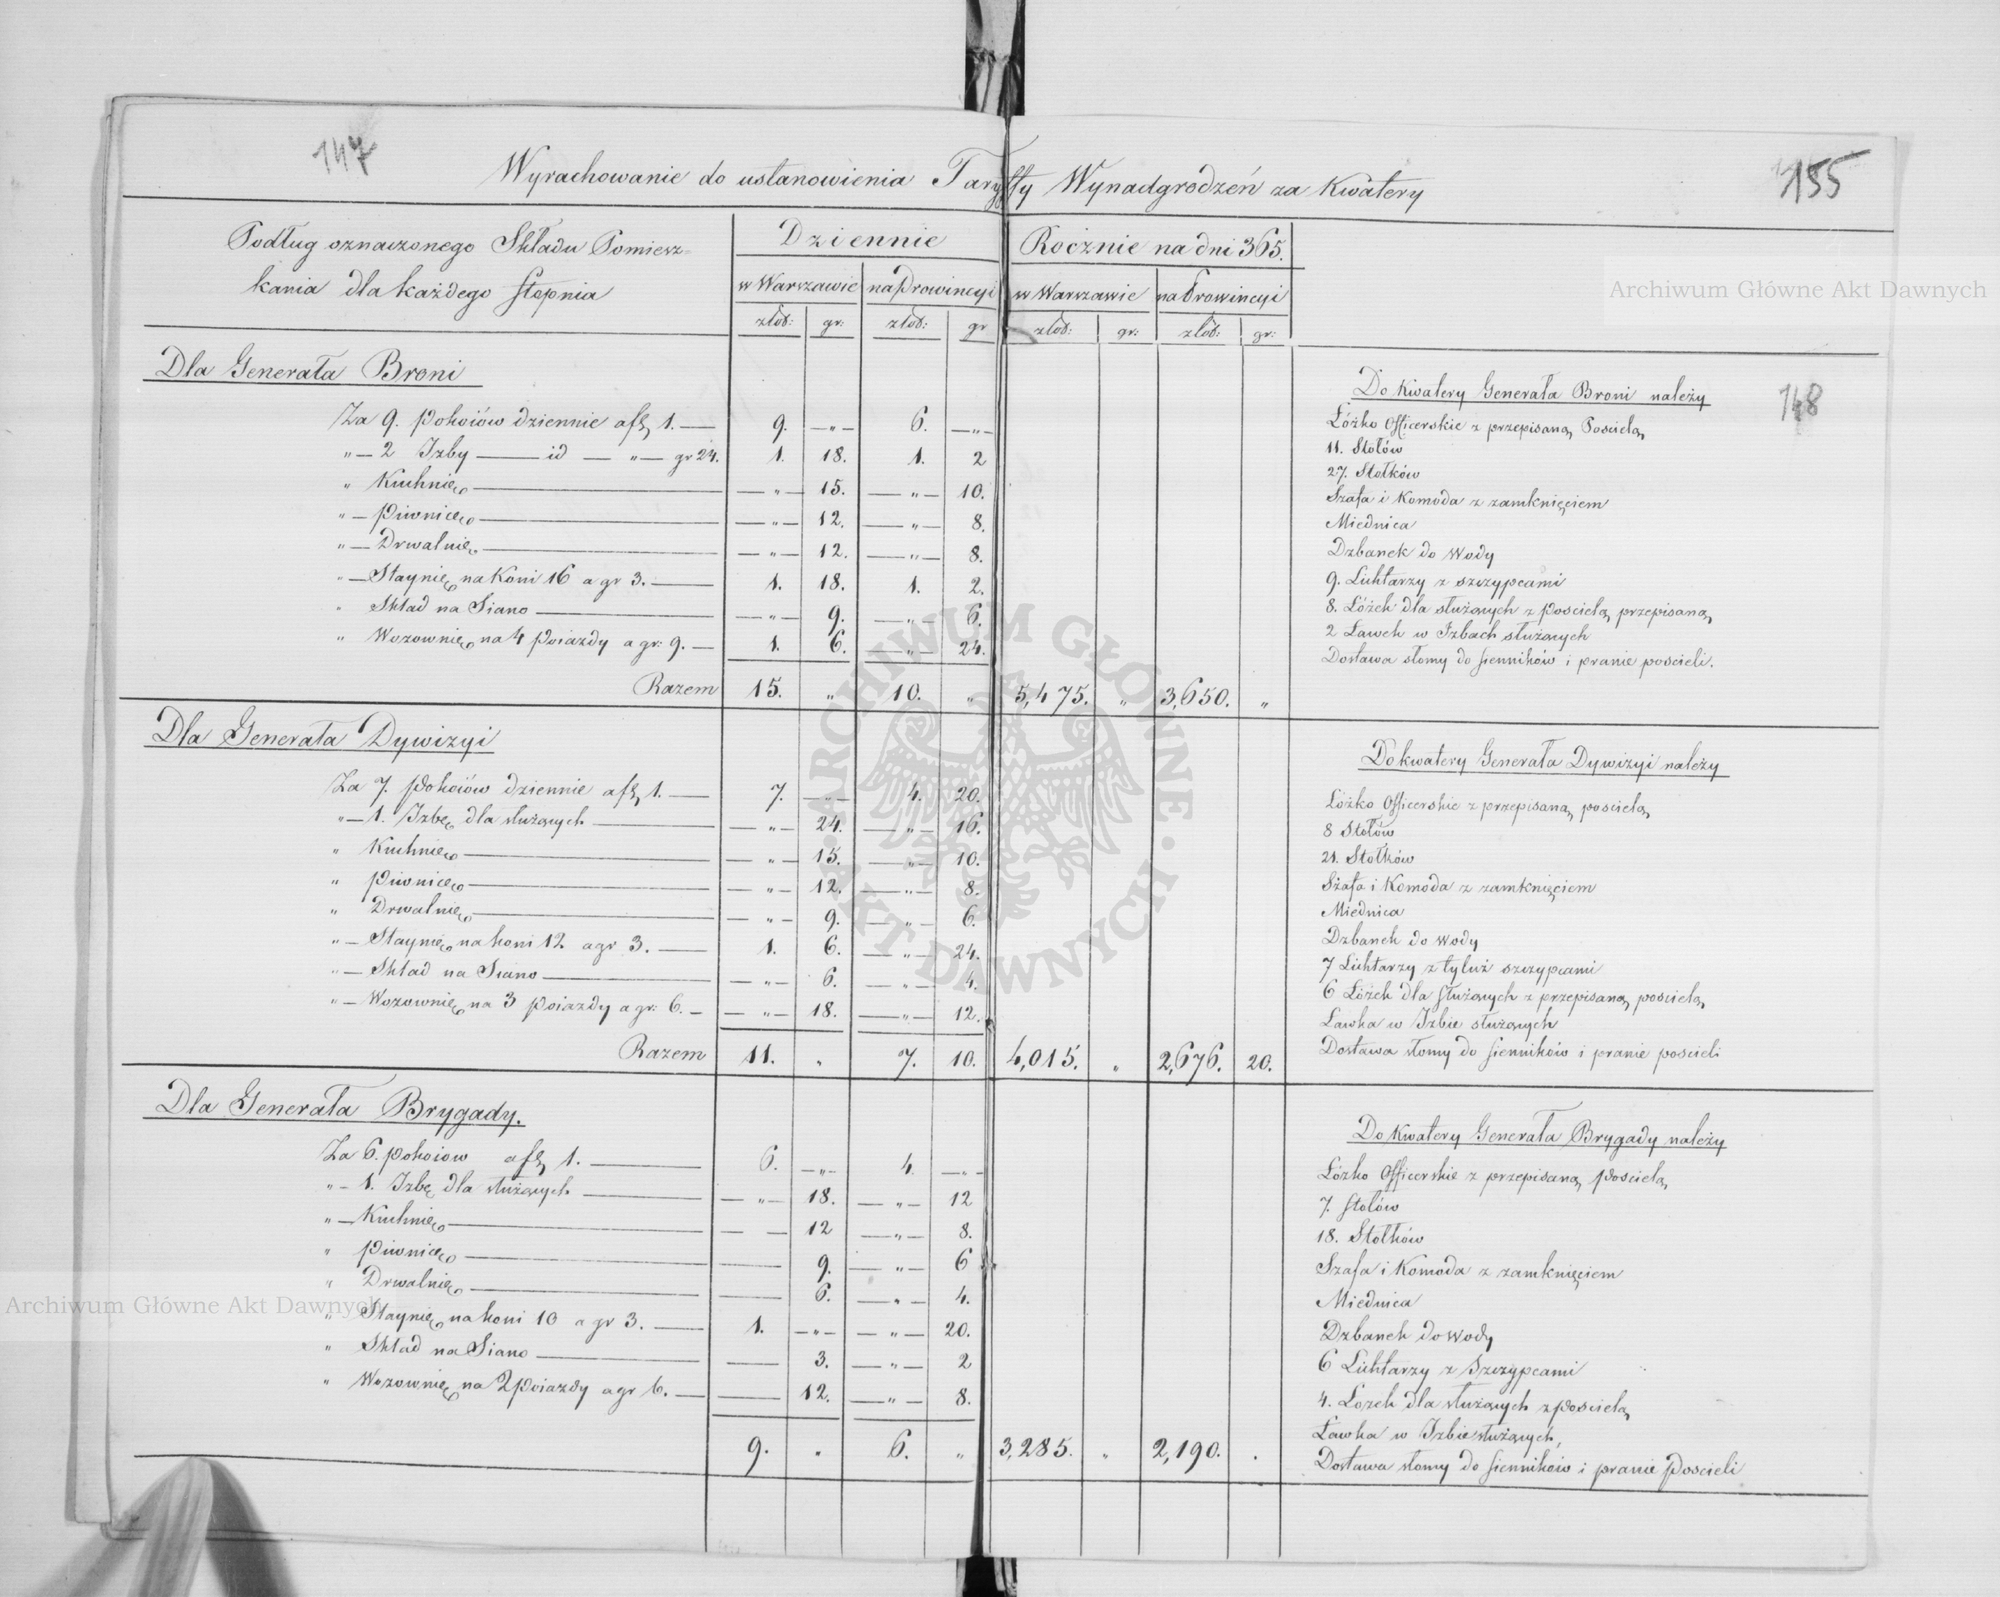 147
155
Wyrachowanie do ustanowienia Taryffy Wynadgrodzeń za Kwatery
Podług oznaczonego Składu Pomiesz-
kania dla każdego stopnia
Dziennie
Rocznie na dni 365.
w Warszawie na Prowincyi w Warszawie na Prowincyi
złot: gr: złot: gr złot: gr: złot: gr:
Dla Generała Broni
Za 9. pokoiów dziennie a fl 1. — 9. — „ — 6. — „ —
„ — 2 Izby — id — „ — gr 24. 1. 18. 1. 2
„ Kuchnię — „ — 15. — „ — 10.
„ — piwnicę — „ — 12. — „ — 8.
„ — Drwalnię — „ — 12. — „ — 8.
„ — Staynię na Koni 16 a gr 3. — 1. 18. 1. 2.
„ Skład na Siano — „ — 9. — „ — 6.
„ Wozownię na 4 poiazdy a gr: 9. — 1. 6. — „ — 24.
Razem 15. „ 10. „ 5,475. „ 3,650. „
Do Kwatery Generała Broni należy
148
Łóżko Officerskie z przepisaną Pościelą
11. Stołów
27. Stołków
Szafa i Komoda z zamknięciem
Miednica
Dzbanek do Wody
9. Lichtarzy z szczypcami
8. Łóżek dla służących z pościelą przepisaną
2 Ławek w Izbach służących
Dostawa słomy do sienników i pranie pościeli.
Dla Generała Dywizyi
Za 7. pokoiów dziennie a fl 1. — 7. — „ — 4. 20.
„ — 1. Izbę dla służących — „ — 24. — „ — 16.
„ Kuchnię — „ — 15. — „ — 10.
„ piwnicę — „ — 12. — „ — 8.
„ Drwalnię — „ — 9. — „ — 6.
„ — Staynię na koni 12 a gr 3. — 1. 6. — „ — 24.
„ — Skład na Siano — „ — 6. — „ — 4.
„ — Wozownię na 3 poiazdy a gr: 6. — „ — 18. — „ — 12.
Razem 11. „ 7. 10. 4,015. „ 2,676. 20.
Do kwatery Generała Dywizyi należy
Łóżko Officerskie z przepisaną pościelą
8 Stołów
21. Stołków
Szafa i Komoda z zamknięciem
Miednica
Dzbanek do wody
7 Lichtarzy z tyluż szczypcami
6 Łóżek dla służących z przepisaną pościelą
Ławka w Izbie służących
Dostawa słomy do sienników i pranie pościeli
Dla Generała Brygady.
Za 6. pokoiow a fl 1. — 6. — „ — 4. — „ —
„ — 1. Izbę dla służących — „ — 18. — „ — 12
„ — Kuchnię — — 12 — „ — 8.
„ piwnicę — 9. — „ — 6
„ Drwalnię — 6. — „ — 4.
„ Staynię na koni 10 a gr 3. — 1. — „ — — „ — 20.
„ Skład na Siano — 3. — „ — 2
„ Wozownię na 2 poiazdy a gr 6. — 12. — „ — 8.
9. „ 6. „ 3,285. „ 2,190. .
Do Kwatery Generała Brygady należy
Łóżko Officerskie z przepisaną pościelą
7. Stołów
18. Stołków
Szafa i Komoda z zamknięciem
Miednica
Dzbanek do wody
6 Lichtarzy z Szczypcami
4. Łożek dla służących z pościelą
Ławka w Izbie służących,
Dostawa słomy do sienników i pranie pościeli
Archiwum Główne Akt Dawnych
Archiwum Główne Akt Dawnych
ARCHIWUM GŁÓWNE · AKT DAWNYCH ·